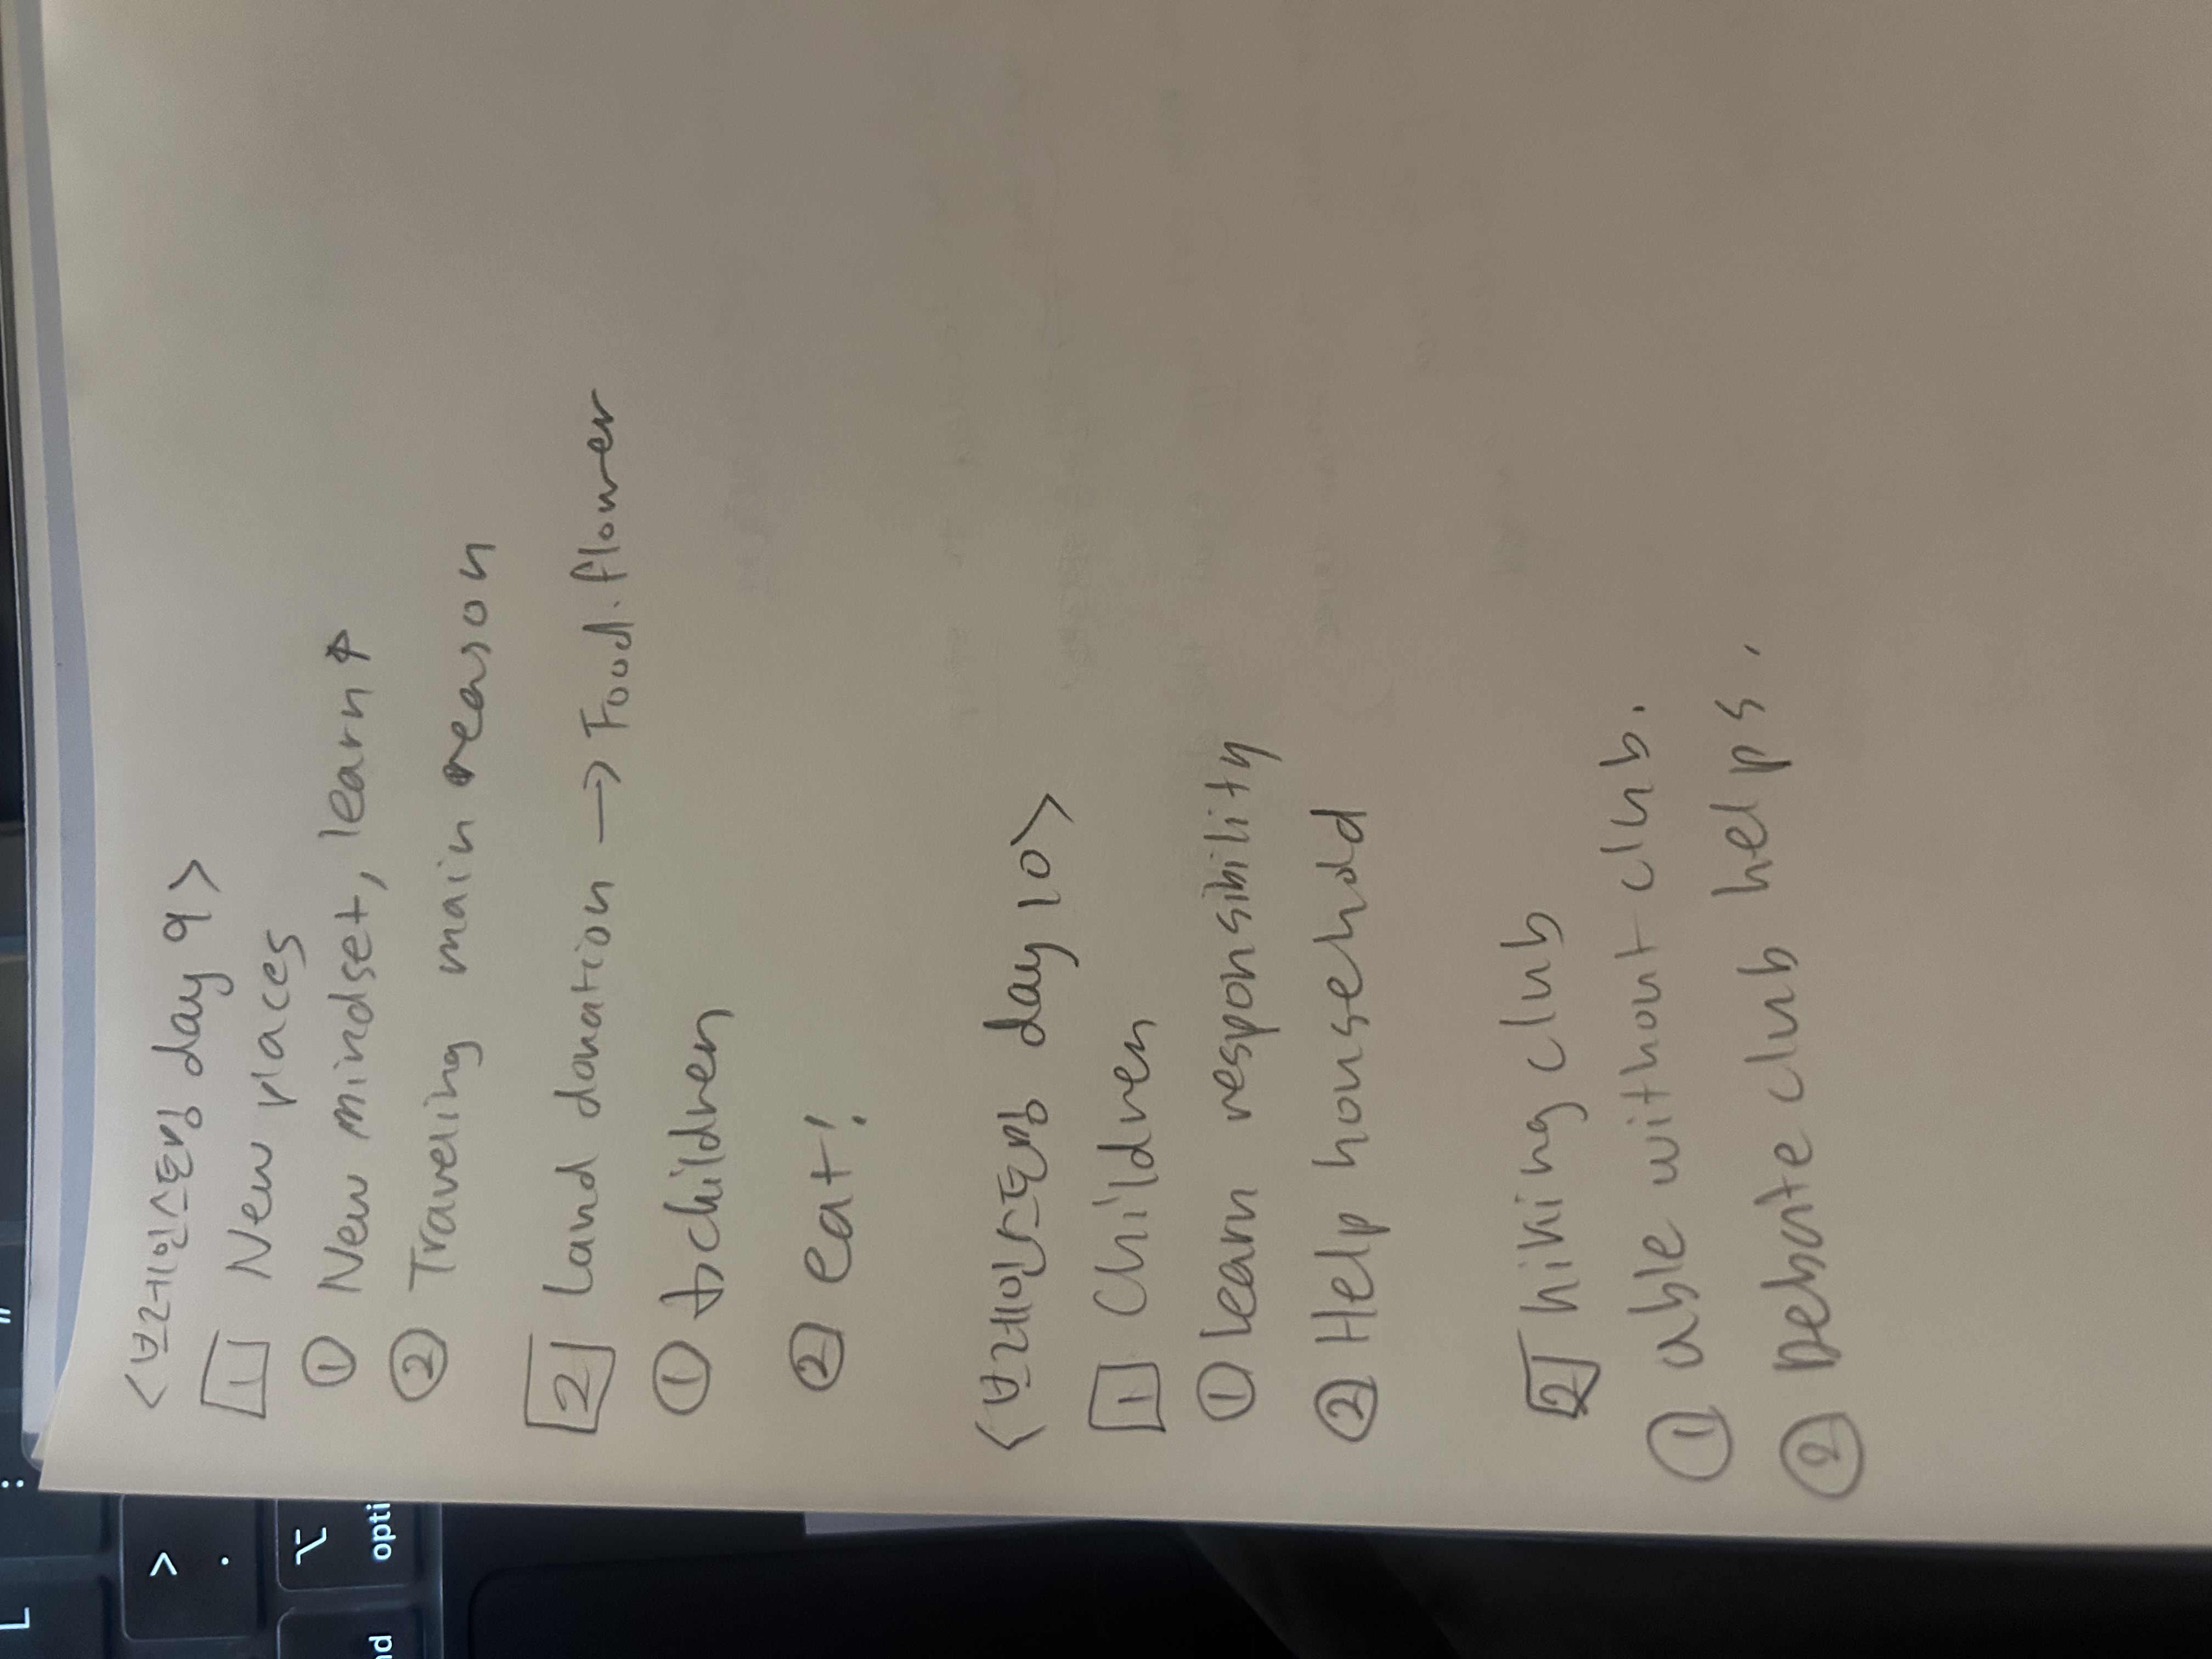 <브레인스토밍 day 9>
1 New places
① New mindset, learn↑
② Traveling main reason
2 Land donation → Food. flower
① children
② eat!
<브레인스토밍 day 10>
1 Children
① learn responsibility
② Help household
2 hiking club
① able without club.
② Debate club helps.
> .
⌥ opti
L
:
"
nd